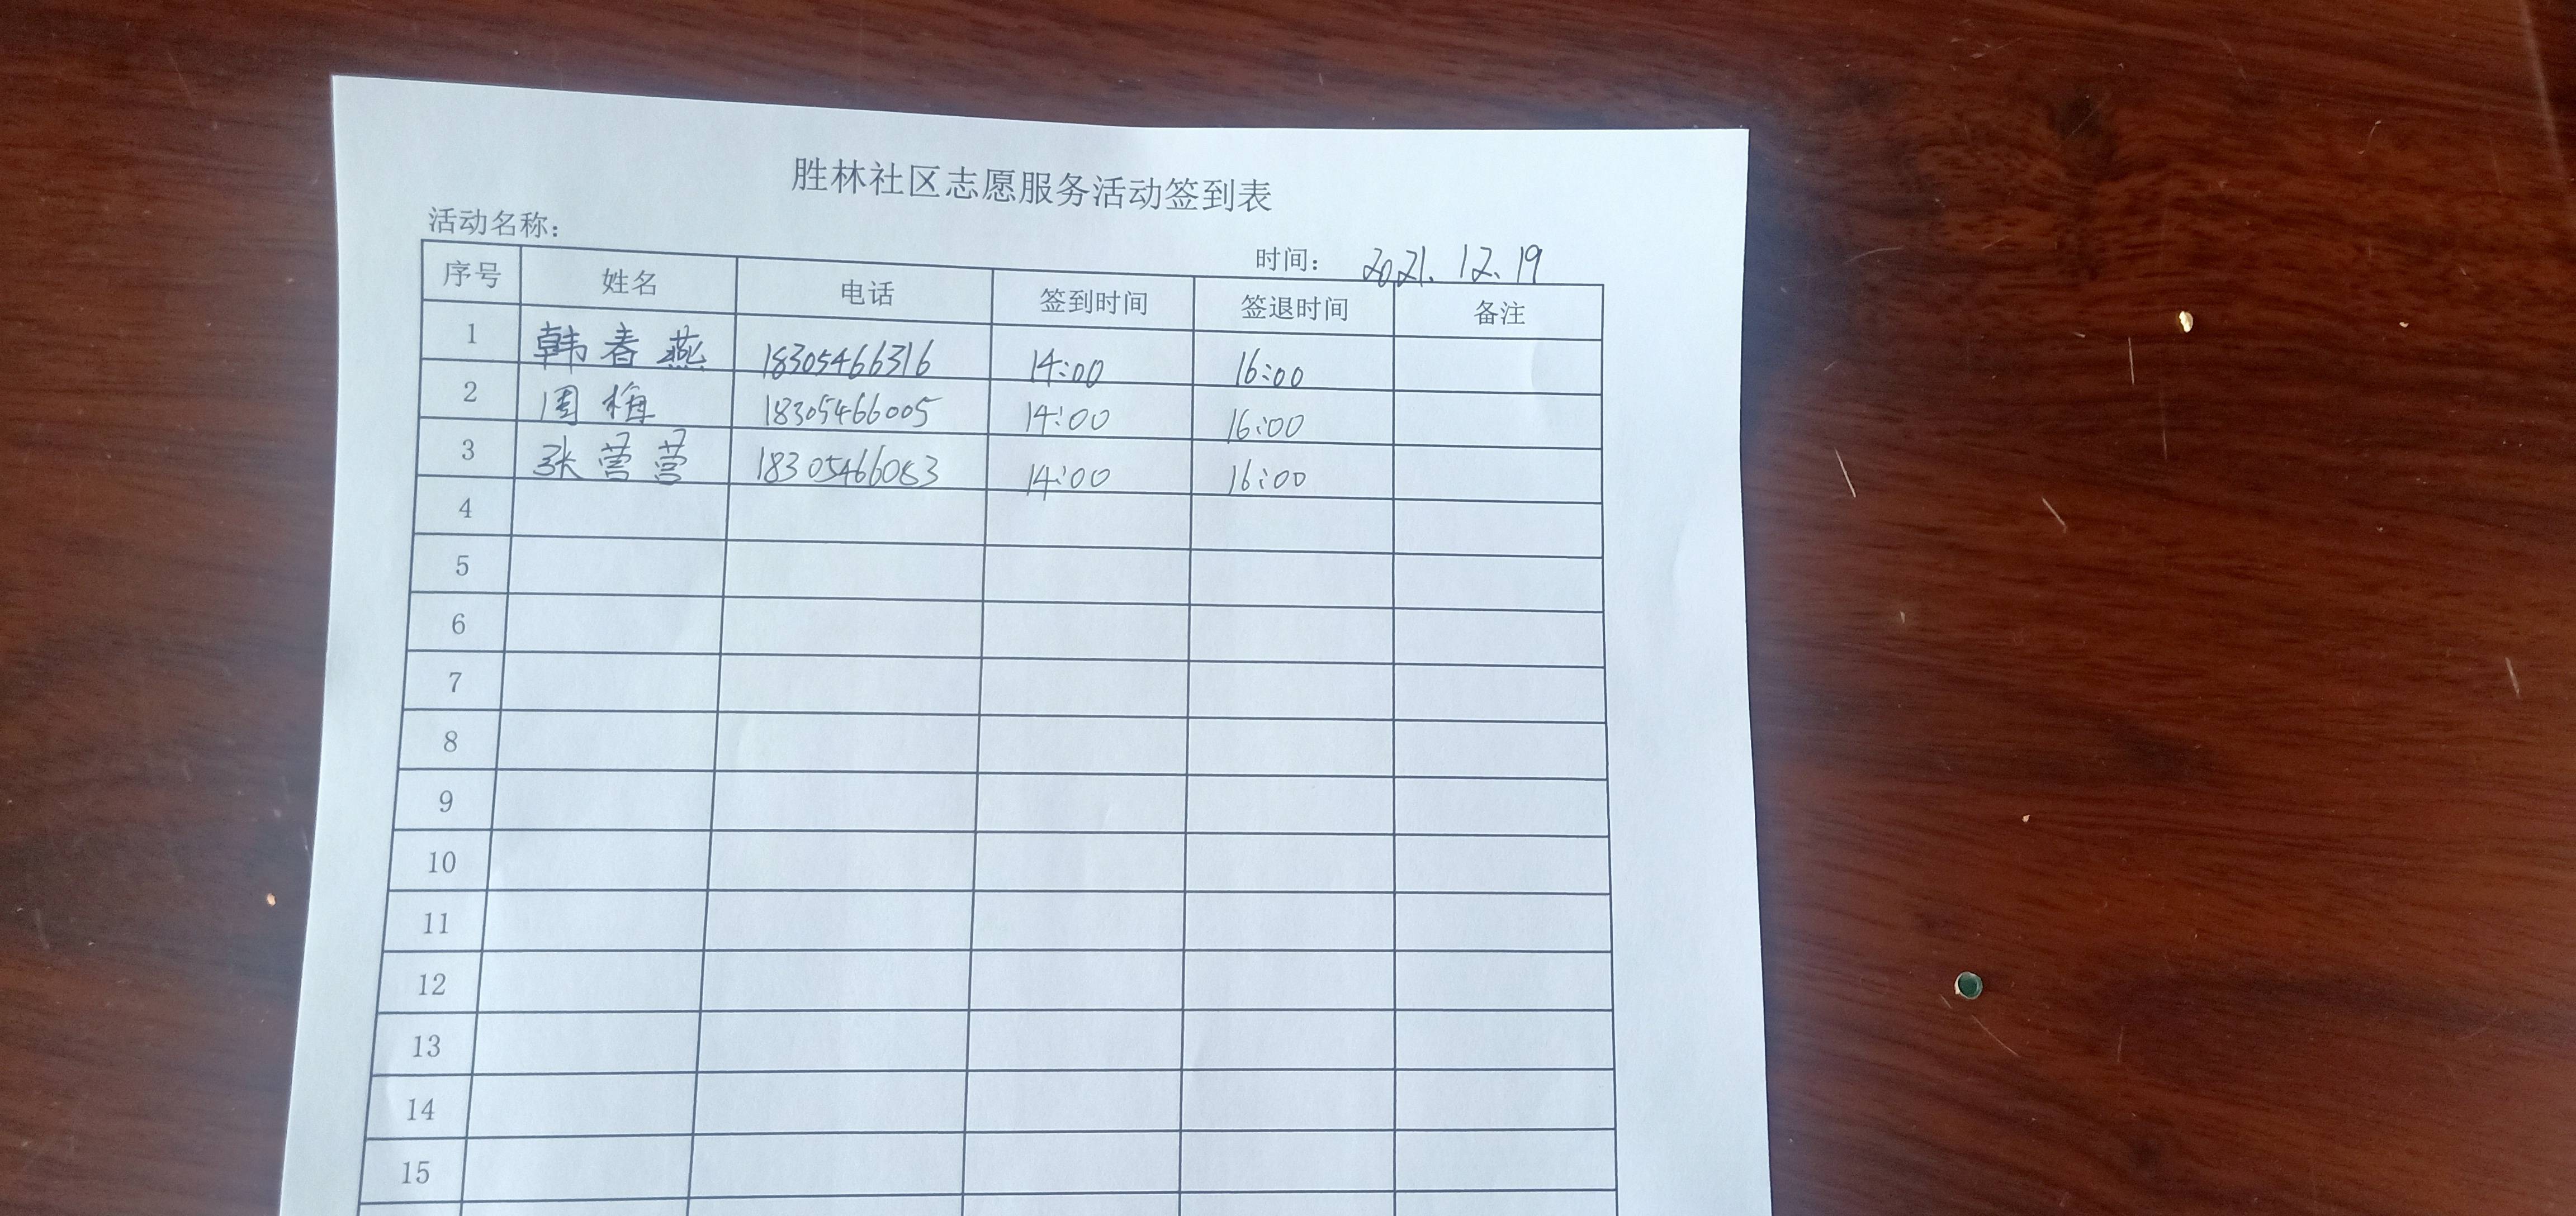 胜林社区志愿服务活动签到表
活动名称:
时间: 2021.12.19
序号 姓名 电话 签到时间 签退时间 备注
1 韩春燕 18305466316 14:00 16:00
2 周梅 18305466005 14:00 16:00
3 张营营 18305466083 14:00 16:00
4
5
6
7
8
9
10
11
12
13
14
15